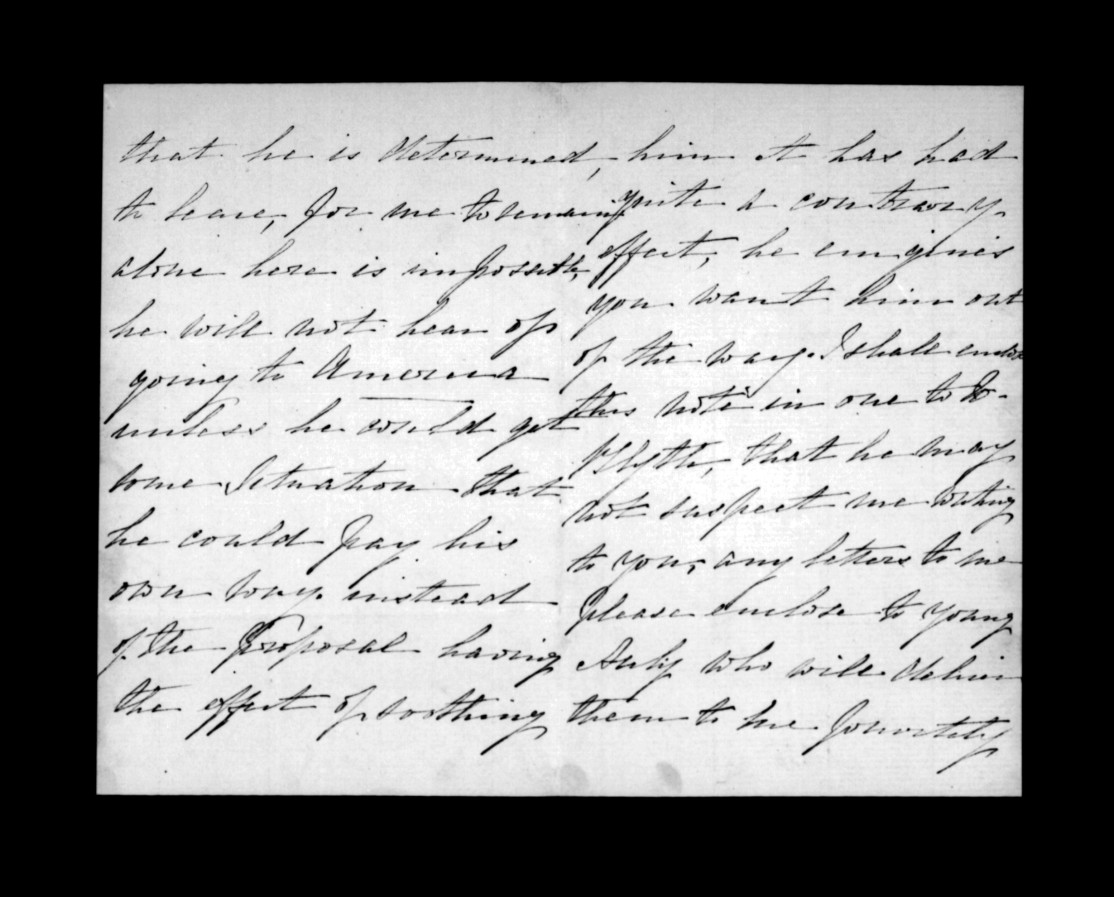 that he is determined,
to leave, for me to remain
alone here is impossible,
he will not hear of
going to America
unless he could get
some Situation that
he could pay his
own way. instead
of the Proposal having
the effect of soothing
him it has had
quite a contrary
effect, he emgines
you want him out
of the way. I shall enclose
this note in one to Dr
Blyth, that he may
not suspect me writing
to you, any letters to me
please enclose to young
who will deliver
them to me